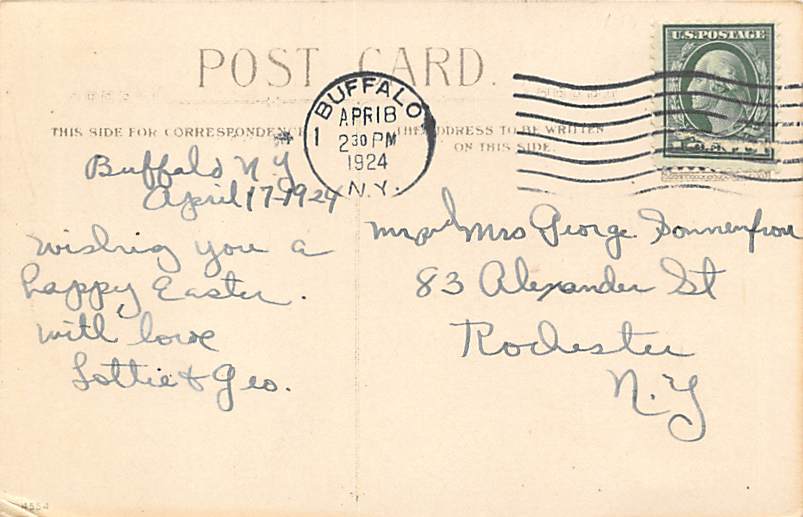 POST CARD.
THIS SIDE FOR CORRESPONDENCE
THE ADDRESS TO BE WRITTEN
ON THIS SIDE.
BUFFALO
1
APR 18
2 30 PM
1924
N.Y.
U.S. POSTAGE
Buffalo N Y
April 17-1924
Wishing you a
happy Easter.
with love
Lottie & Geo.
Mr and Mrs George
83 Alexander St
Rochester
N.Y
4554